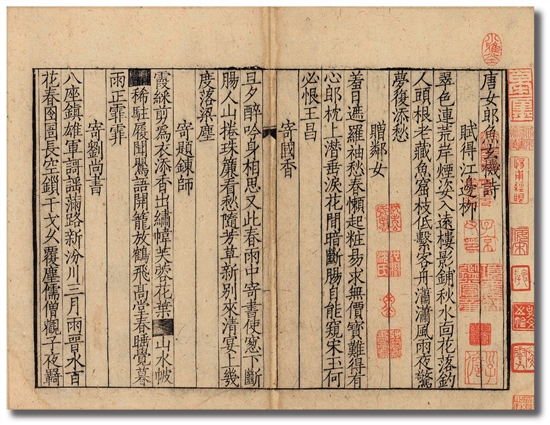 唐女郎魚玄機詩
賦得江邊柳
翠色連荒岸煙姿入遠樓影鋪秋水面花落釣
人頭根老藏魚窟枝低繫客舟瀟瀟風雨夜驚
夢復添愁
贈鄰女
羞日遮羅袖愁春懶起粧易求無價寶難得有
心郎枕上潛垂淚花間暗斷腸自能窺宋玉何
必恨王昌
寄國香
旦夕醉吟身相思又此春雨中寄書使窓下斷
腸人山捲珠簾看愁隨芳草新別來清宴上幾
度落梁塵
寄題鍊師
霞綵剪為衣添香出繡幃芙蓉花葉山水帔
稀駐履聞鶯語開籠放鶴飛高堂春睡覺暮
雨正霏霏
寄劉尚書
八座鎮雄軍謌謠滿路新汾川三月雨晉水百
花春囹圄長空鏁干戈久覆塵儒僧觀子夜羇